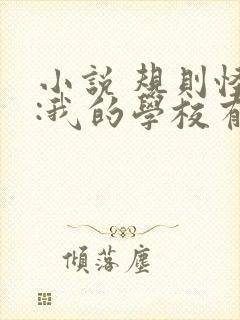 小說 規則怪
:我的學校有
傾落塵